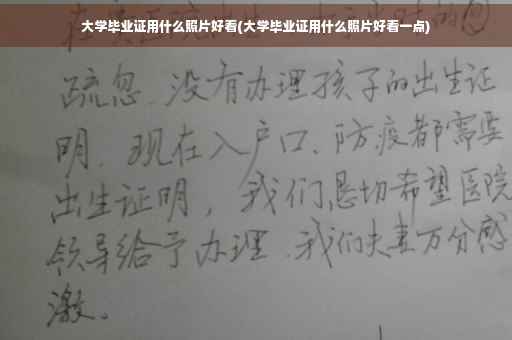 大学毕业证用什么照片好看(大学毕业证用什么照片好看一点)
疏忽、没有办理孩子的出生证
明. 现在入户口、防疫都需要
出生证明，我们恳切希望医院
领导给予办理、我们夫妻万分感
激。